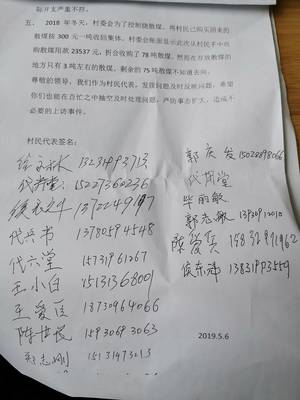 际开支严重不符。
五、 2018 年冬天，村委会为了控制烧散煤，将村民已购买回来的
散煤按 300 元一吨收回集体。村委会帐面显示此次从村民手中收
购散煤用款 23537 元，折合收购了 78 吨散煤。然而在存放散煤的
地方只有 3 吨左右的散煤。剩余的 75 吨散煤不知道去向。
尊敬的领导，我们作为村民代表，发现问题及时反映问题，希望
你们也能在百忙之中抽空及时处理问题，严防事态扩大，造成不
必要的上访事件。
村民代表签名：
13231993713
15227360236
代兵书 13780594548
代六堂 15731961267
王小白 15131368001
王爱臣 18730964066
陈世民 15930693063
志刚 15131973213
郭庆发 15028898066
毕丽敏
郭志敏 13930912010
陈爱兵
侯东 13831993559
2019.5.6